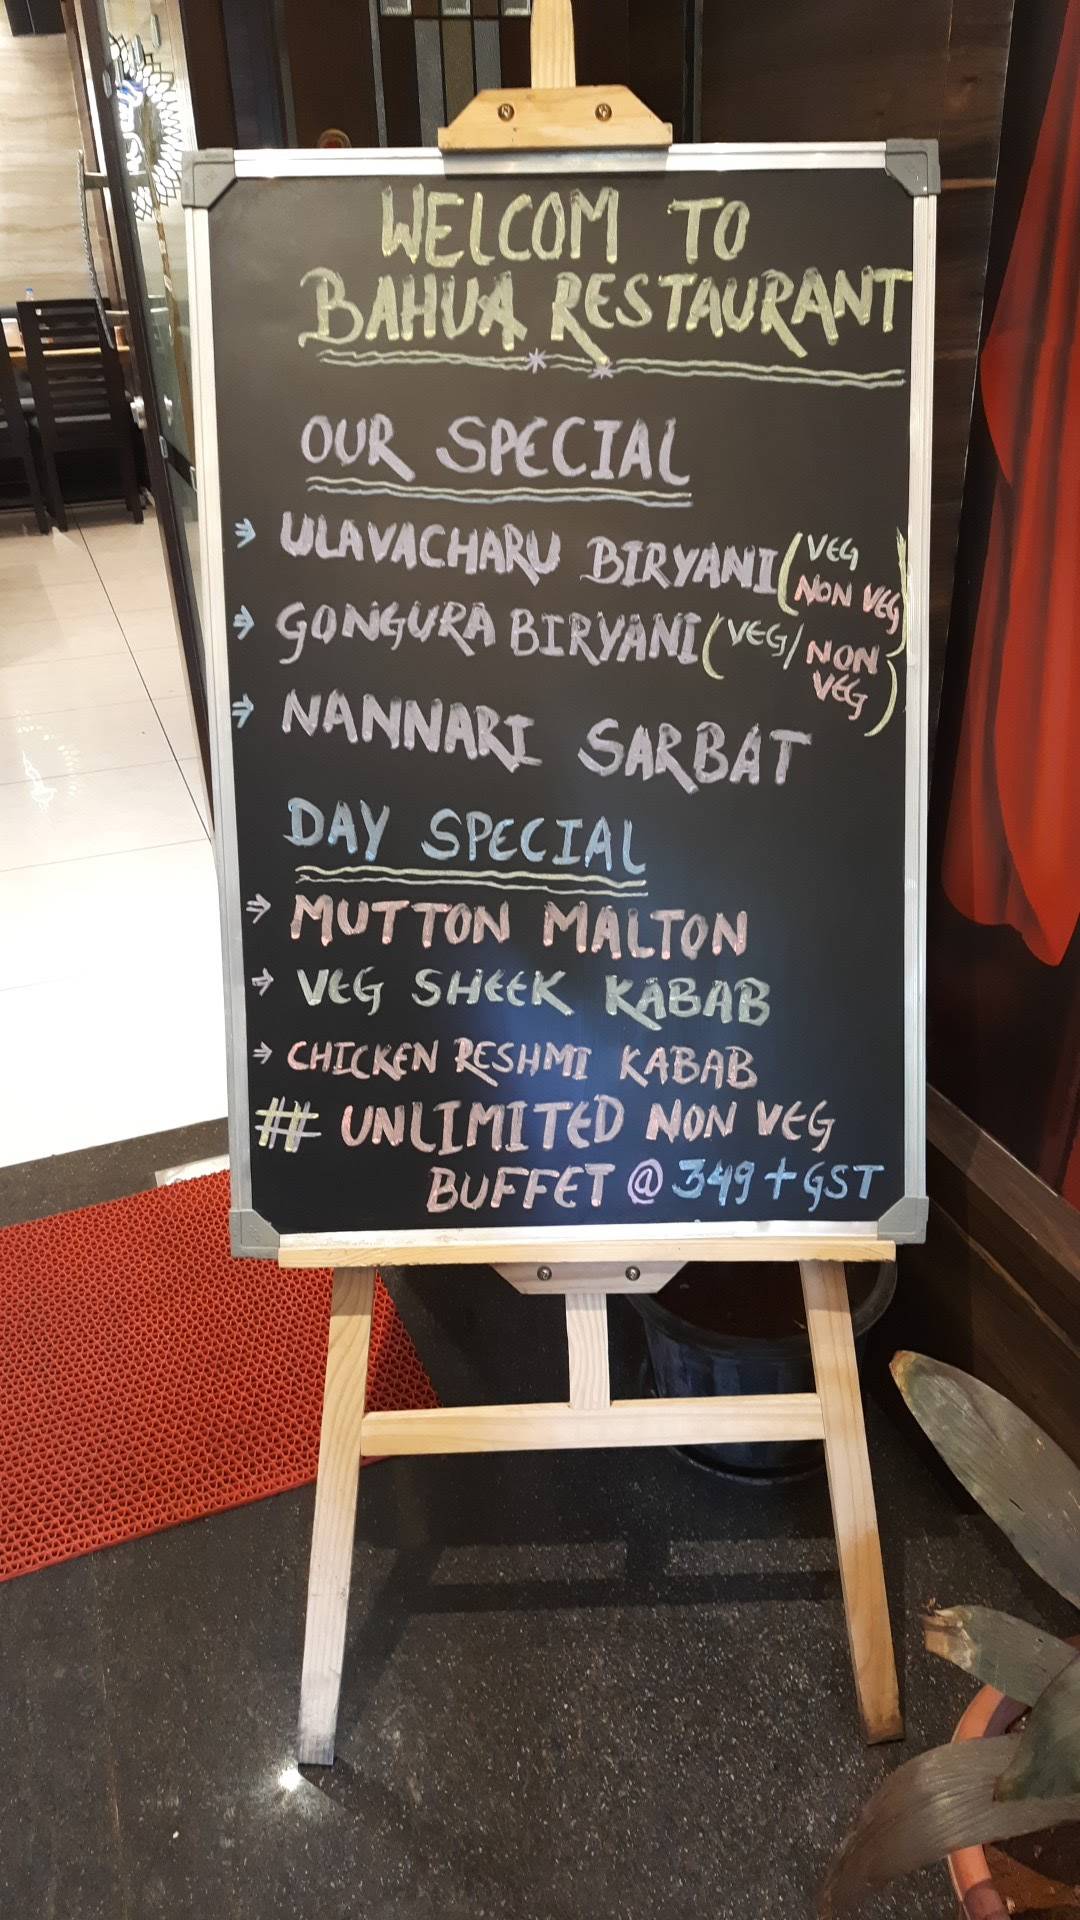 WELCOM TO
BAHUA RESTAURANT
OUR SPECIAL
⇒ ULAVACHARU BIRYANI (VEG
NON VEG)
⇒ GONGURA BIRYANI (VEG/NON
VEG)
⇒ NANNARI SARBAT
DAY SPECIAL
⇒ MUTTON MALTON
⇒ VEG SHEEK KABAB
⇒ CHICKEN RESHMI KABAB
# UNLIMITED NON VEG
BUFFET @ 349 + GST